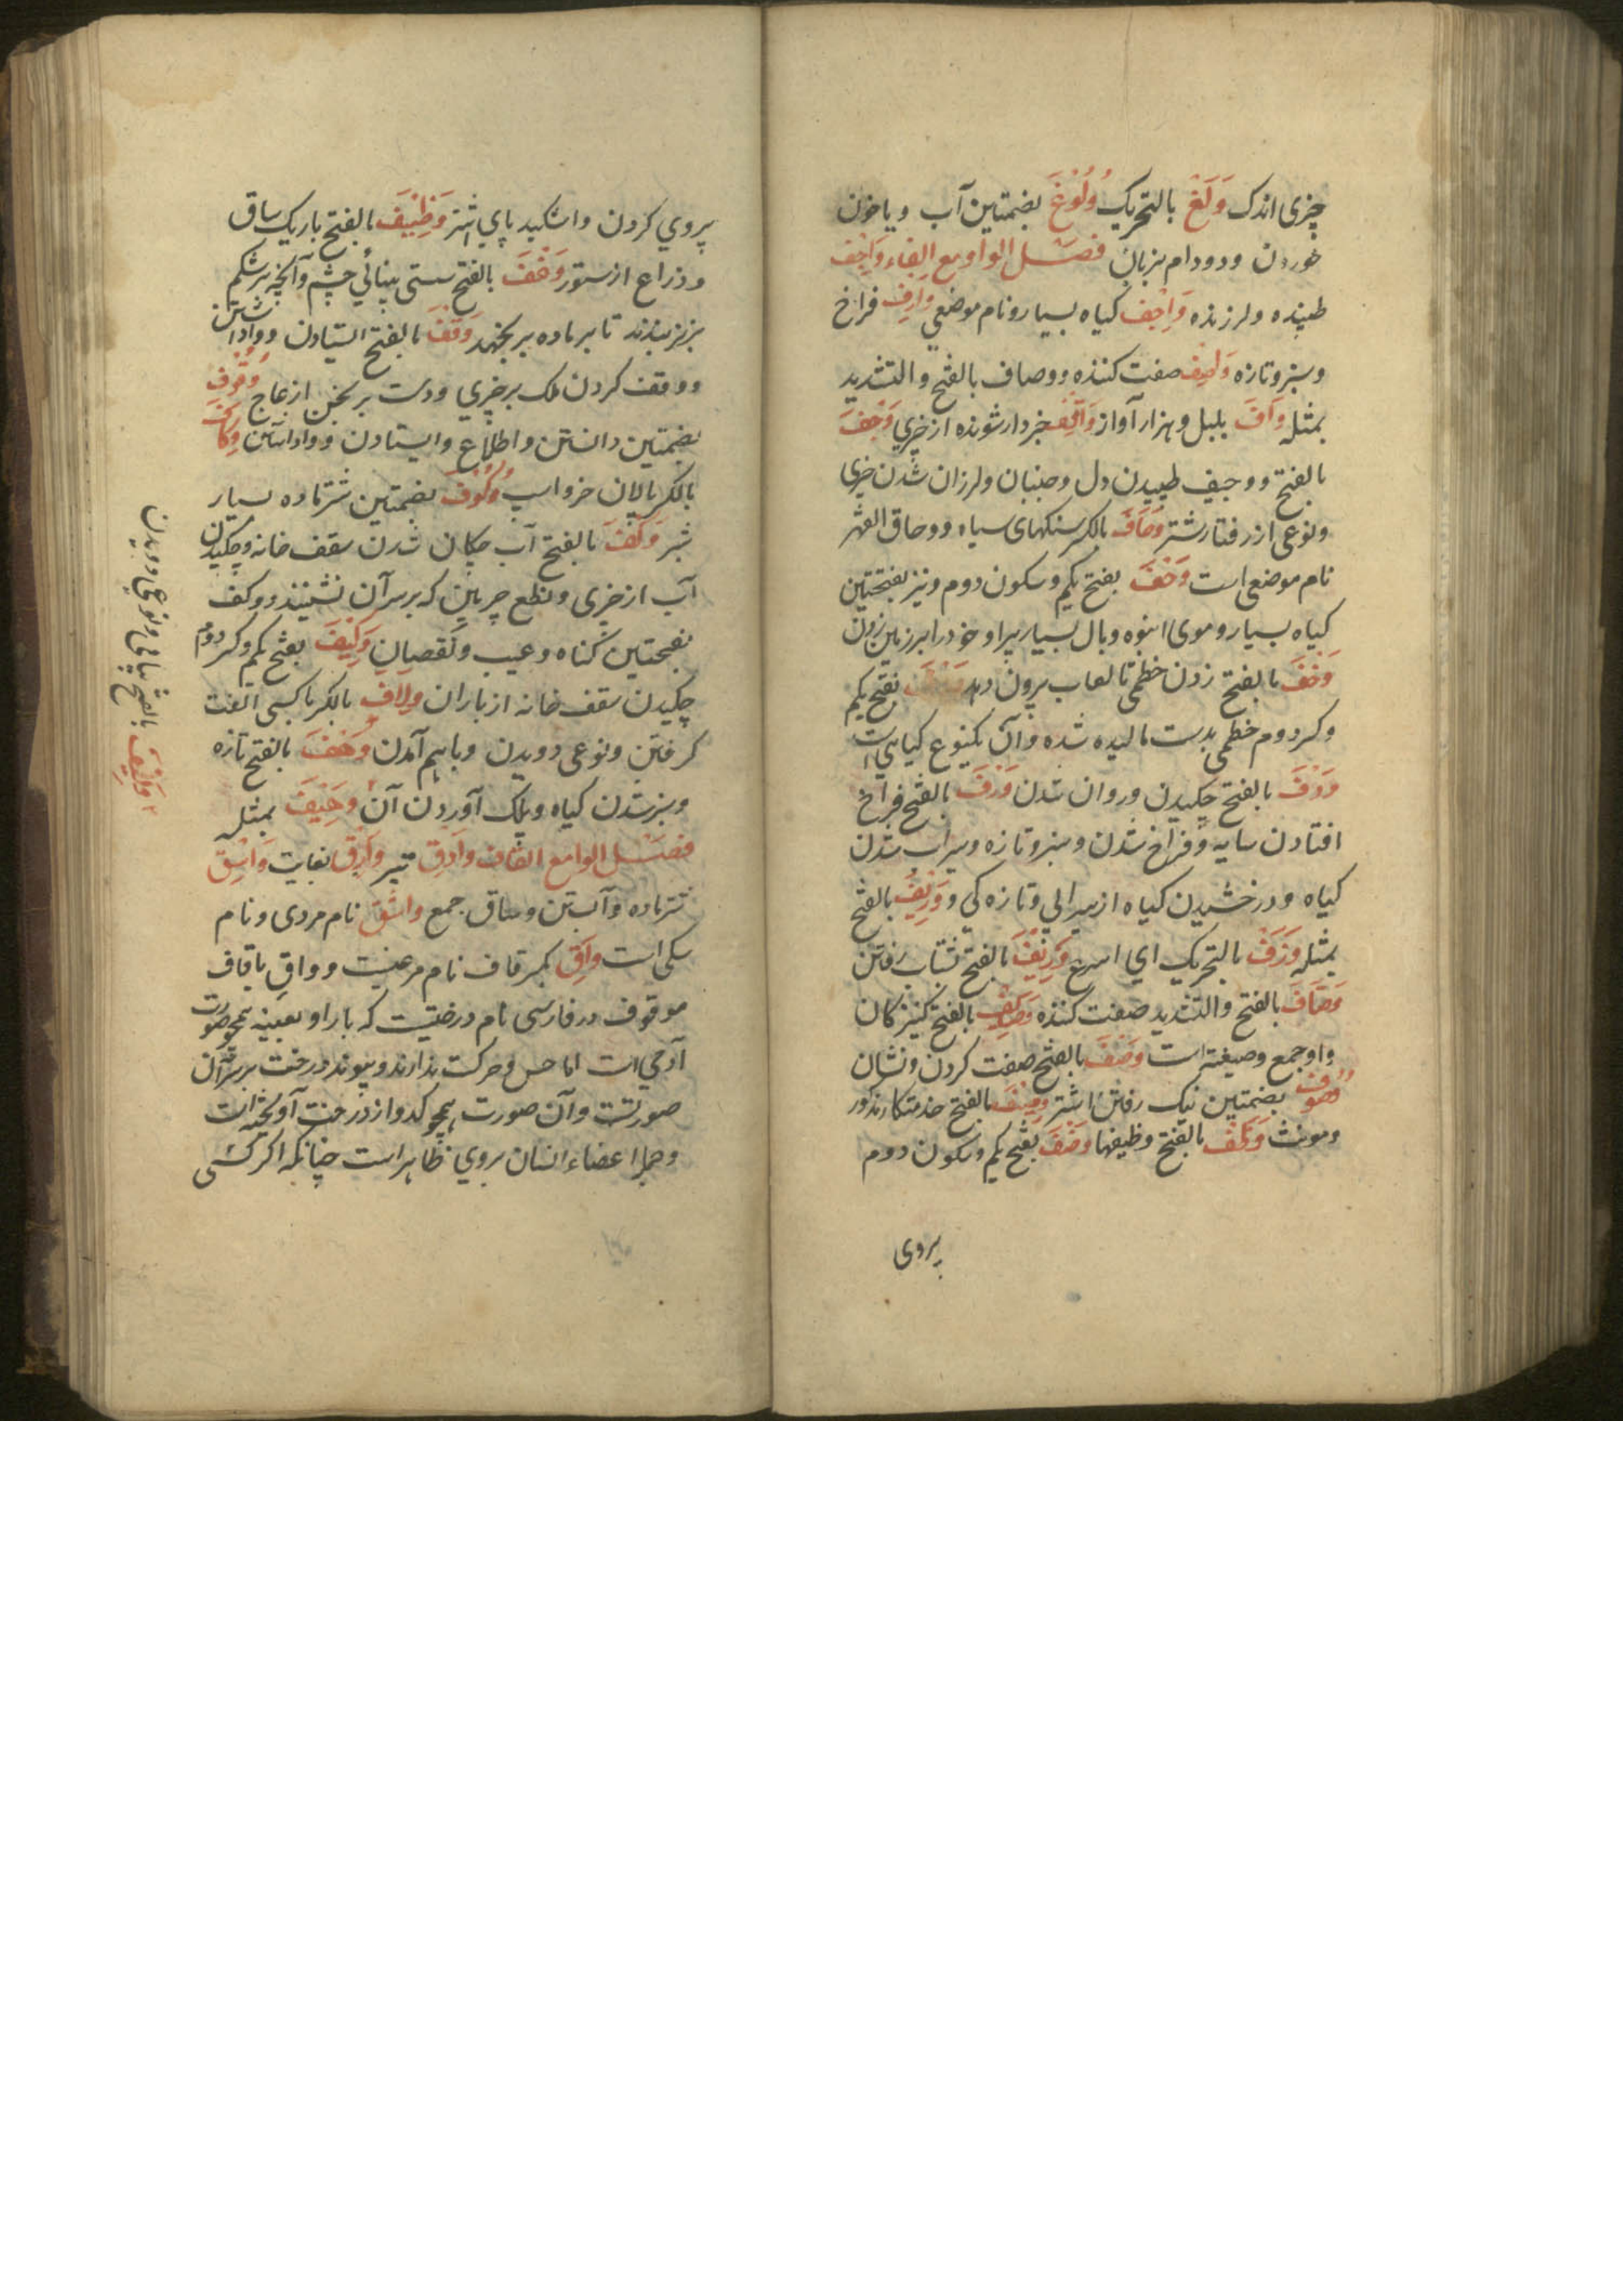 چیزی اندک وَلَغْ بالتحریک وُلُوْغَ بضمتین آب و یا خون
خوردن و دودام بزبان فصل الواو مع الفاء وَاجِف
طپنده و لرزنده وَاحِف کیاه بسیار و نام موضعی وارِف فراخ
و سبز و تازه صفت کننده ووصاف بالفتح و التشدید
بمثله بلبل و هزار آواز وَاقِف خبردار شونده از چیزی وَجْفَ
بالفتح ووجیف طپیدن دل و جنبان و لرزان شدن چیزی
و نوعی از رفتار شتر وِحَافَ بالکسر سنکهای سیاه ووحاف القهر
نام موضعی است وَحْفَ بفتح یکم و سکون دوم و نیز بفتحتین
کیاه بسیار و موی انبوه و بال بسیار پر او خود را بر زمین زدن
وَخْفَ بالفتح زدن خطمی تا لعاب بیرون دهد بفتح یکم
و کسر دوم خطمی بدست مالیده شده و آن یکنوع کیاهی است
وَدْفَ بالفتح چکیدن و روان شدن وَرْفَ بالفتح فراخ
افتادن سایه و فراخ شدن و سبز و تازه و سیراب شدن
کیاه و درخشیدن کیاه از سیرابی و تازه کی و وَرِیْفُ بالفتح
بمثله وَزَفْ بالتحریک ای اسرع وَزِیْفَ بالفتح شتاب رفتن
وَصَّافَ بالفتح و التشدید صفت کننده وَصَایِف بالفتح کنیزکان
واو جمع وصیفه است وَصْفَ بالفتح صفت کردن و نشان
بضمتین نیک رفتن اشتر وصِیْفَ بالفتح خدمتکار مذکور
و مونث بالفتح وظیفها بفتح یکم و سکون دوم
پروی
پروی کردن و پای اشتر وَظِیْفَ بالفتح باریک ساق
و ذراع از ستور بالفتح سستی بینائی چشم و آنچه بر شکم
بز نر بندند تا بر ماده بر نجهد وَقْفَ بالفتح ایستادن و وا داشتن
و وقف کردن ملک بر چیزی و دست برنجن از عاج وُقُوف
بضمتین دانستن و اطلاع و ایستادن و وا داشتن وِکَافَ
بالکسر پالان خر و اسپ وُکُوْفَ بضمتین شتر ماده بسیار
شیر وَکْفَ بالفتح آب چکان شدن سقف خانه و چکیدن
آب از چیزی و نطع چرمین که بر سر آن نشینند و وکف
بفتحتین کناه و عیب و نقصان وَکِیْفَ بفتح یکم و کسر دوم
چکیدن سقف خانه از باران وِلَاف بالکسر با کسی الفت
کرفتن و نوعی دویدن و باهم آمدن بالفتح تازه
و سبز شدن کیاه و برک آوردن آن بمثله
فصل الواو مع القاف وَادِق تیز بغایت وَاسِق
شتر ماده و آبستن وساق جمع واشِق نام مردی و نام
سکی است وَاقِ بکسر قاف نام مرغیست و واق با قاف
موقوف در فارسی نام درختیست که بار او بعینه همچو صورت
آدمی است اما حس و حرکت ندارند و پیوند درخت بر سر آن
صورتست و آن صورت همچو کدو از درخت آویخته است
و جمله اعضاء انسان بروی ظاهر است چنانکه اکر کسی
وَلِیْف بالفتح پیاپی و نوعی دویدن